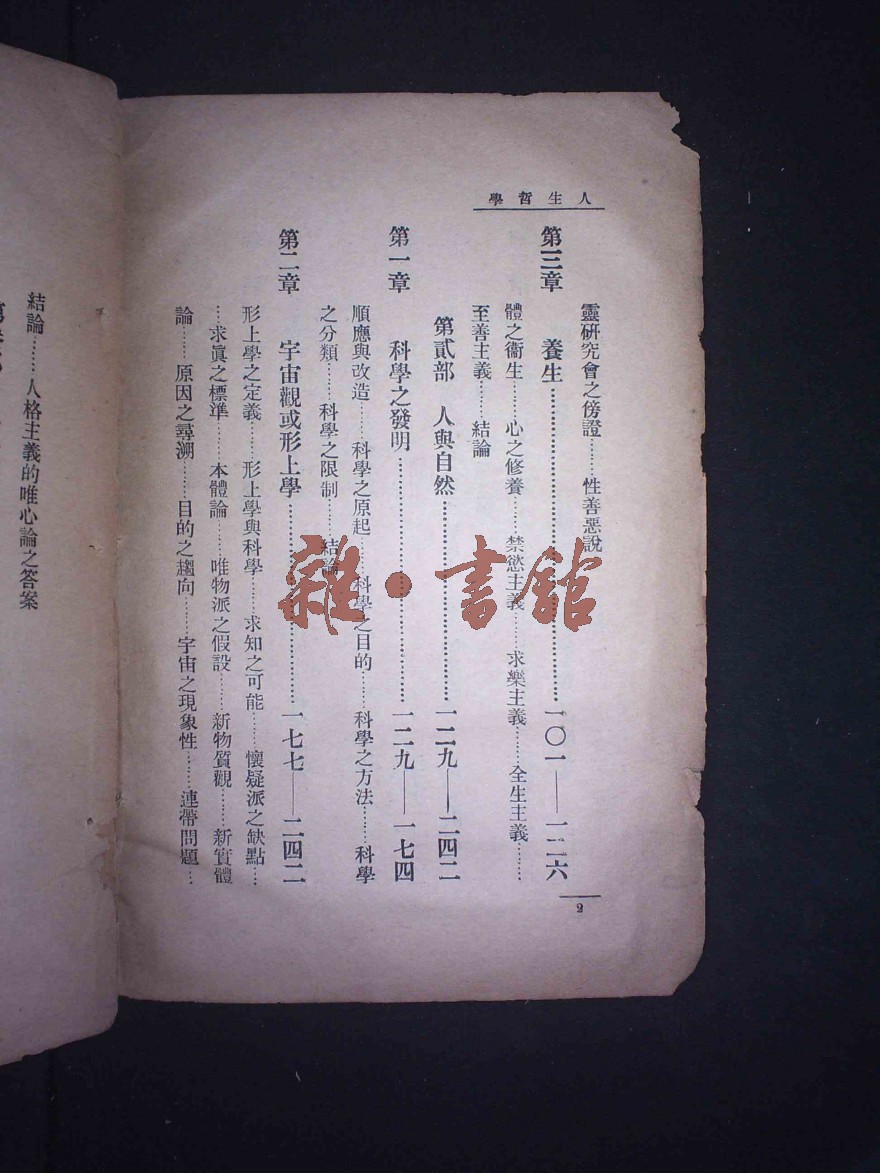 人生哲學
靈研究會之傍證………性善惡說
第三章　養生……………………………………一〇一——一二六
體之衞生………心之修養………禁慾主義………求樂主義………全生主義………
至善主義………結論
第貳部　人與自然……………………………一二九——二四二
第一章　科學之發明……………………………一二九——一七四
順應與改造………科學之原起………科學之目的………科學之方法………科學
之分類………科學之限制………結論
第二章　宇宙觀或形上學……………………一七七——二四二
形上學之定義………形上學與科學………求知之可能………懷疑派之缺點………
………求眞之標準………本體論………唯物派之假設………新物質觀………新實體
論………原因之尋溯………目的之趨向………宇宙之現象性………連帶問題………
2
結論………人格主義的唯心論之答案
雜·書館